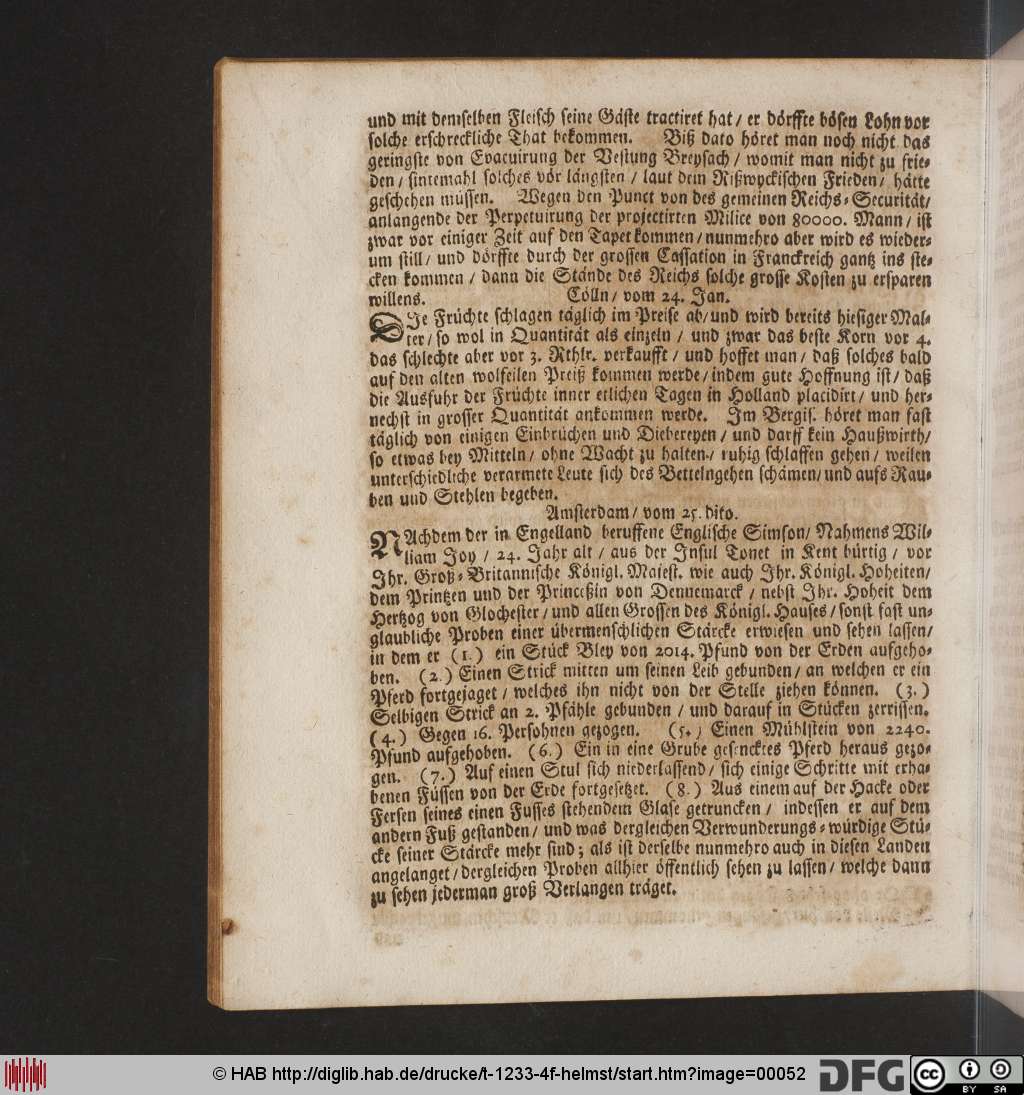 und mit demselben Fleisch seine Gäste tractiret hat / er dörffte bösen Lohn vor
solche erschreckliche That bekommen. Biß dato höret man noch nicht das
geringste von Evacuirung der Vestung Breysach / womit man nicht zu frie-
den / sintemahl solches vor längsten / laut dem Rißwyckischen Frieden / hätte
geschehen müssen. Wegen den Punct von des gemeinen Reichs-Securität /
anlangende der Perpetuirung der projectirten Milice von 80000. Mann / ist
zwar vor einiger Zeit auf den Tapet kommen / nunmehro aber wird es wieder-
um still / und dörffte durch der grossen Cassation in Franckreich gantz ins ste-
cken kommen / dann die Stände des Reichs solche grosse Kosten zu ersparen
willens. Cölln / vom 24. Jan.
DIe Früchte schlagen täglich im Preise ab / und wird bereits hiesiger Mal-
ter / so wol in Quantität als einzeln / und zwar das beste Korn vor 4.
das schlechte aber vor 3. Rthlr. verkaufft / und hoffet man / daß solches bald
auf den alten wolfeilen Preiß kommen werde / indem gute Hoffnung ist / daß
die Ausfuhr der Früchte inner etlichen Tagen in Holland placidirt / und her-
nechst in grosser Quantität ankommen werde. Im Bergis. höret man fast
täglich von einigen Einbrüchen und Diebereyen / und darff kein Haußwirth /
so etwas bey Mitteln / ohne Wacht zu halten / ruhig schlaffen gehen / weilen
unterschiedliche verarmete Leute sich des Bettelngehen schämen / und aufs Rau-
ben und Stehlen begeben.
Amsterdam / vom 25. dito.
NAchdem der in Engelland beruffene Englische Simson / Nahmens Wil-
liam Joy / 24. Jahr alt / aus der Insul Tonet in Kent bürtig / vor
Ihr. Groß-Britannische Königl. Majest. wie auch Ihr. Königl. Hoheiten /
dem Printzen und der Princeßin von Dennemarck / nebst Ihr. Hoheit dem
Hertzog von Glochester / und allen Grossen des Königl. Hauses / sonst fast un-
glaubliche Proben einer übermenschlichen Stärcke erwiesen und sehen lassen /
in dem er (1.) ein Stück Bley von 2014. Pfund von der Erden aufgeho-
ben. (2.) Einen Strick mitten um seinen Leib gebunden / an welchen er ein
Pferd fortgejaget / welches ihn nicht von der Stelle ziehen können. (3.)
Selbigen Strick an 2. Pfähle gebunden / und darauf in Stücken zerrissen.
(4.) Gegen 16. Persohnen gezogen. (5.) Einen Mühlstein von 2240.
Pfund aufgehoben. (6.) Ein in eine Grube gesencktes Pferd heraus gezo-
gen. (7.) Auf einen Stul sich niederlassend / sich einige Schritte mit erha-
benen Füssen von der Erde fortgesetzet. (8.) Aus einem auf der Hacke oder
Fersen seines einen Fusses stehendem Glase getruncken / indessen er auf dem
andern Fuß gestanden / und was dergleichen Verwunderungs-würdige Stü-
cke seiner Stärcke mehr sind ; als ist derselbe nunmehro auch in diesen Landen
angelanget / dergleichen Proben allhier öffentlich sehen zu lassen / welche dann
zu sehen jederman groß Verlangen träget.
© HAB http://diglib.hab.de/drucke/t-1233-4f-helmst/start.htm?image=00052
DFG
cc BY SA